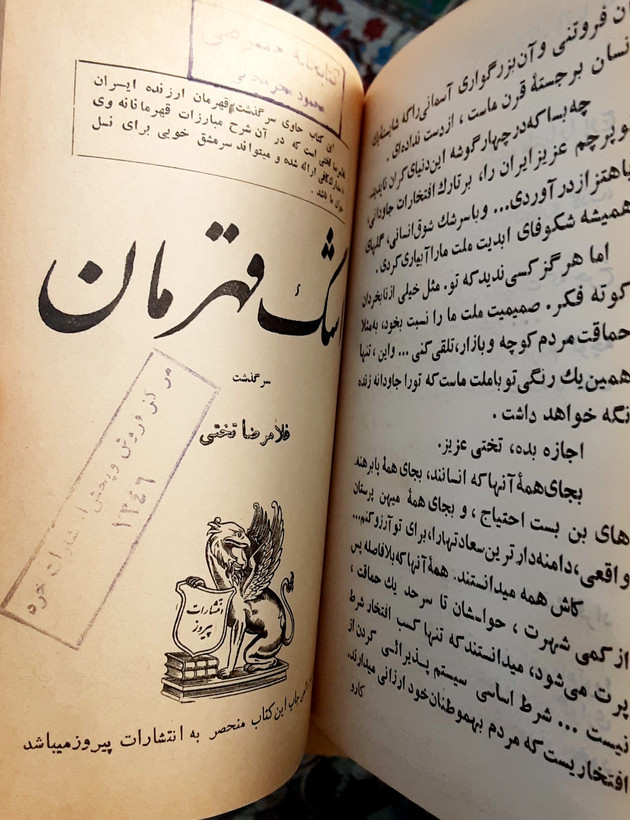 کتابخانه خصوصی
محمود
این کتاب حاوی سرگذشت قهرمان ارزنده ایران
غلامرضا تختی است که در آن شرح مبارزات قهرمانانه وی
ارائه شده و میتواند سرمشق خوبی برای نسل
جوان ما باشد.
اشک قهرمان
سرگذشت
غلامرضا تختی
مرکز فروش و پخش انتشارات خرد
۱۳٤٦
انتشارات
پیروز
چاپ این کتاب منحصر به انتشارات پیروز میباشد
فروتنی و آن بزرگواری آسمانی را که شایستهٔ یک
انسان برجستهٔ قرن ماست ، از دست نداده‌ای .
چه بسا که در چهار گوشه این دنیای کران ناپدید
و پرچم عزیز ایران را، بر تارک افتخارات جاودانی،
باهتزاز در آوردی... و با سرشک شوق انسانی، گلهای
همیشه شکوفای ابدیت ملت ما را آبیاری کردی .
اما هرگز کسی ندید که تو. مثل خیلی از نابخردان
کوته فکر. صمیمیت ملت ما را نسبت بخود، به مثلا
حماقت مردم کوچه و بازار، تلقی کنی ... و این ، تنها
همین یک رنگی تو با ملت ماست که تورا جاودانه زنده
نگه خواهد داشت .
اجازه بده، تختی عزیز.
بجای همهٔ آنها که انسانند، بجای همهٔ پابرهنه
های بن بست احتیاج ، و بجای همهٔ میهن پرستان
واقعی، دامنه‌دار ترین سعادتها را، برای تو آرزو کنم...
کاش همه میدانستند. همهٔ آنها که بلافاصله پس
از کمی شهرت ، حواسشان تا سرحد یک حماقت ،
پرت می‌شود، میدانستند که تنها کسب افتخار شرط
نیست ... شرط اساسی سیستم پذیرائی کردن از
افتخاریست که مردم بهموطنان خود ارزانی میدارند.
کارو